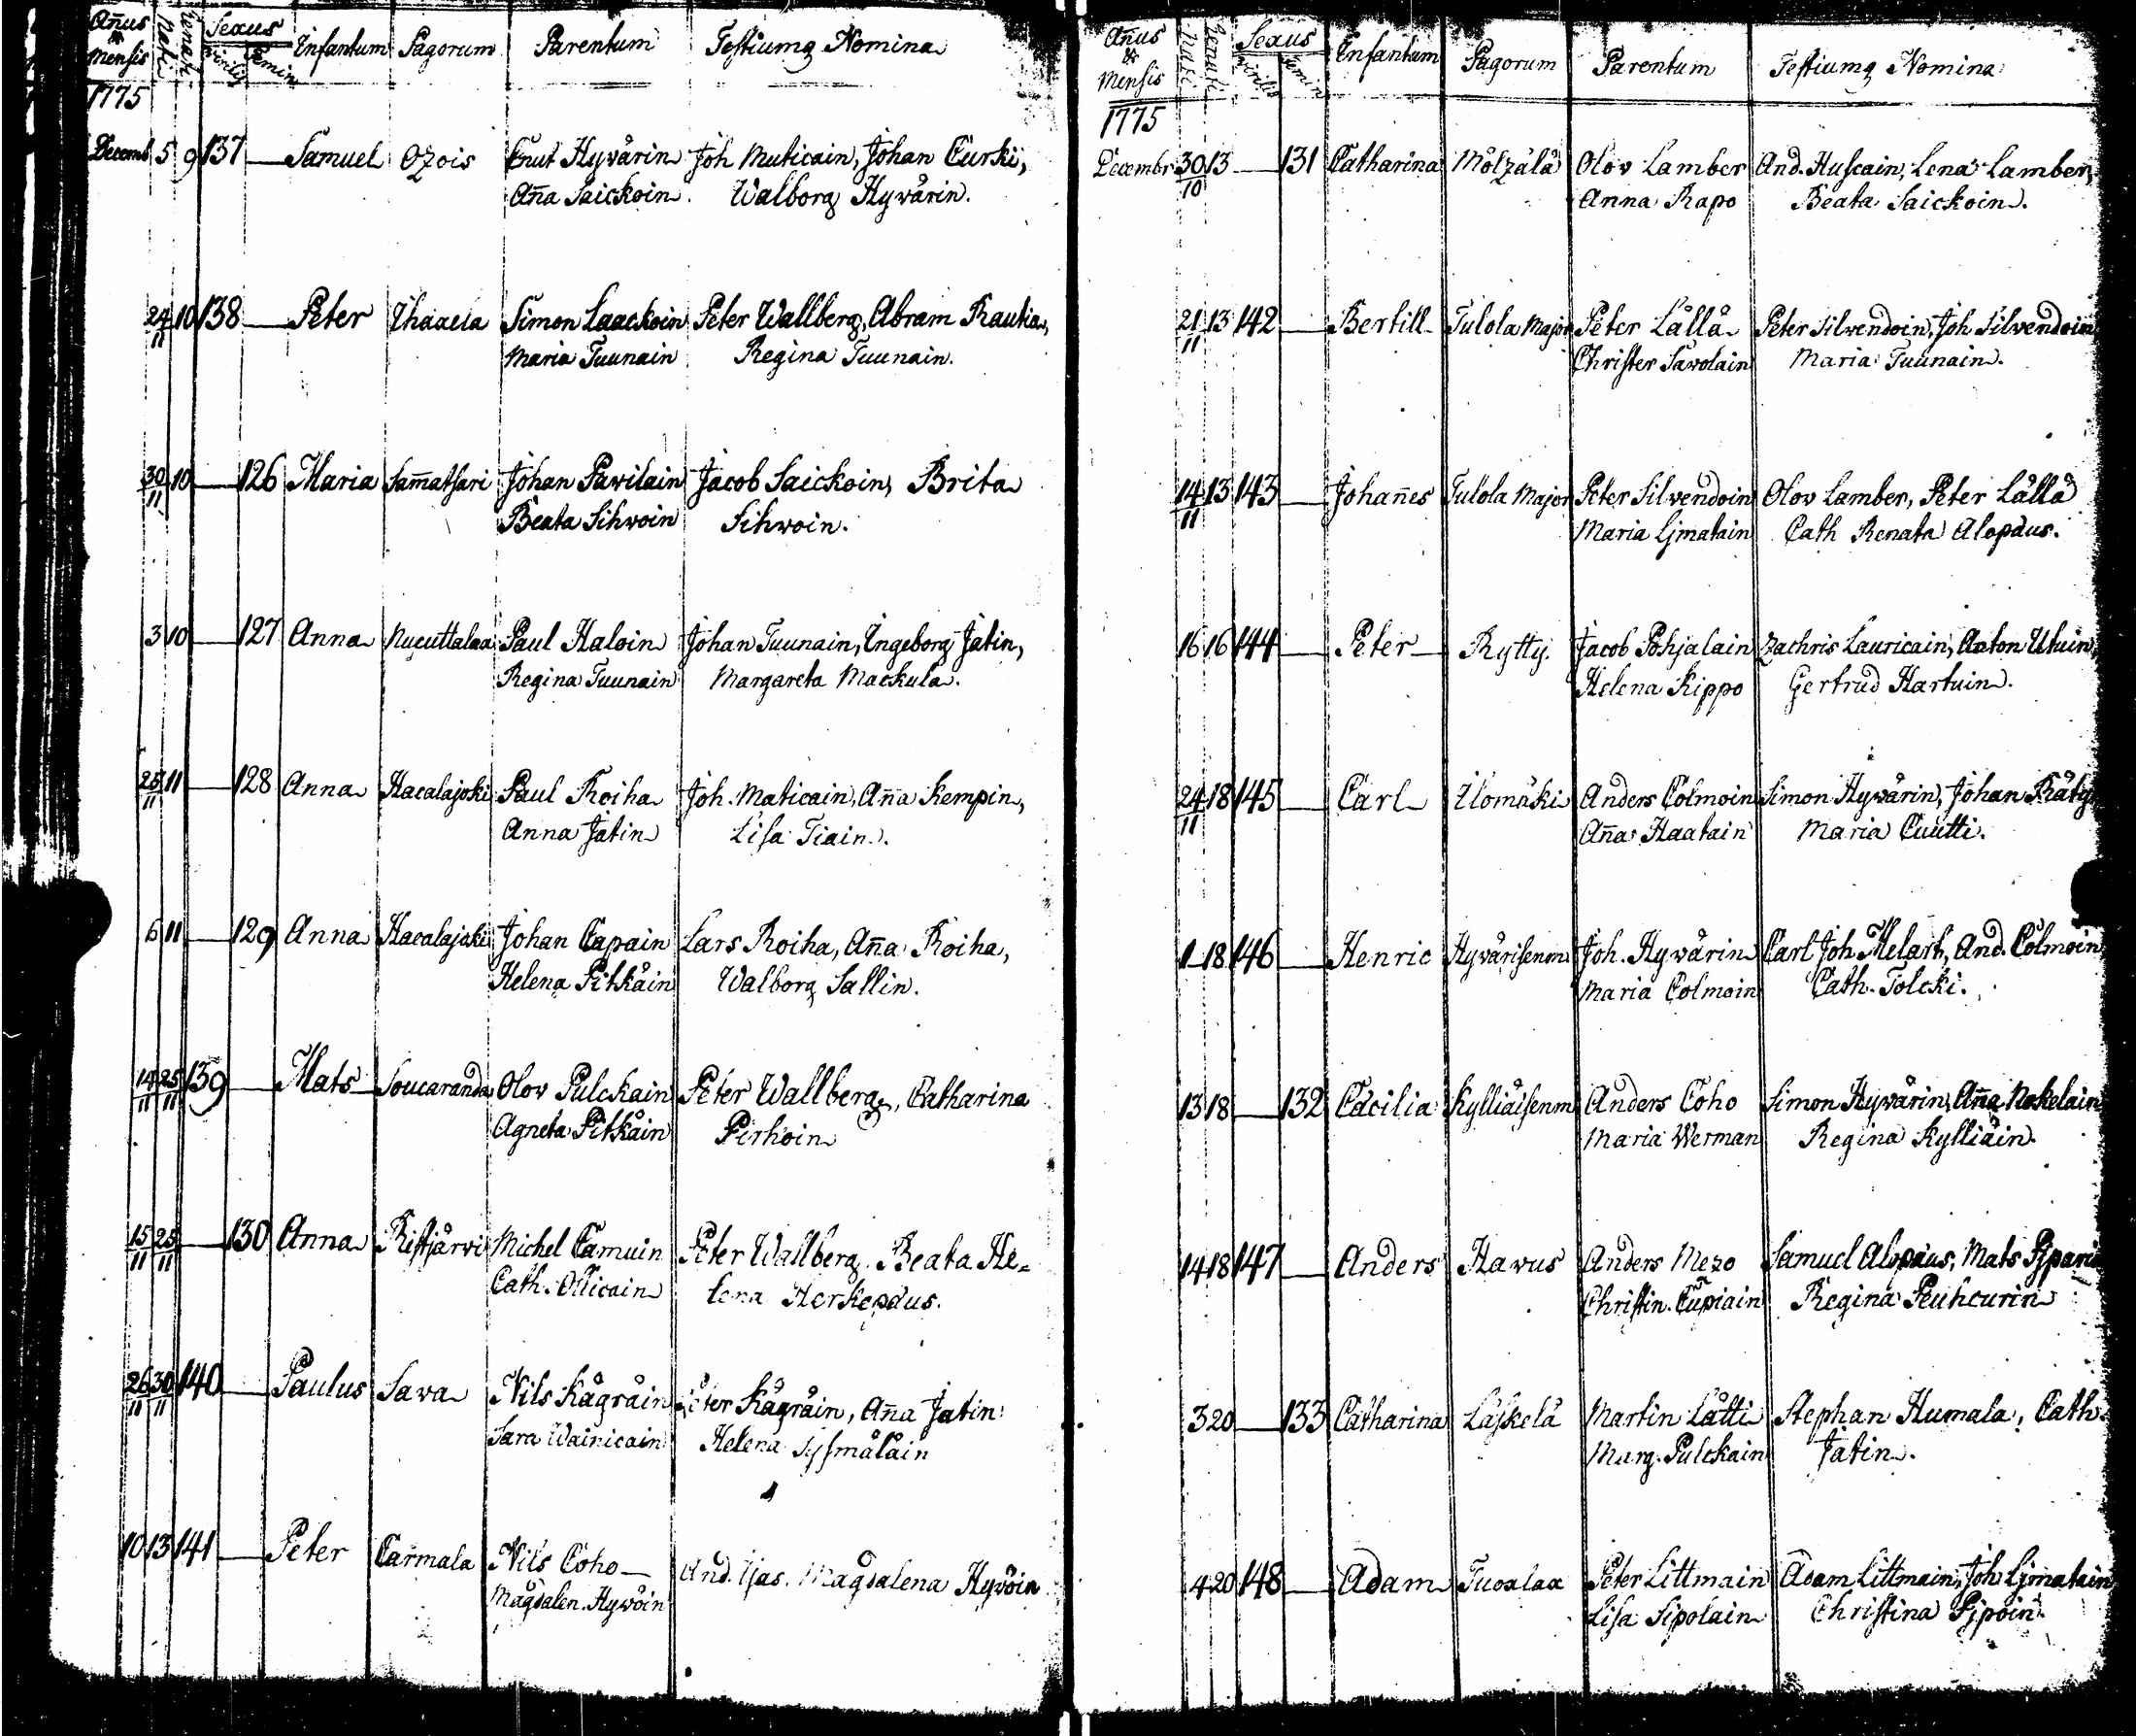 Añus & Mensis Nati Renati Sexus Virilis Femin Infantum Pagorum Parentum Testiumq Nomina
1775
Decemb 5 9 137 Samuel Ozois Cnut Hyvärin Joh Muticain, Johan Curki,
Aña Saickoin. Walborg Hyvärin.
24/11 10 138 Peter Ihaaela Simon Laackoin Peter Wallberg, Abram Rautia,
Maria Tuunain Regina Tuunain.
30/11 10 126 Maria Sam̄atsari Johan Pawilain Jacob Saickoin, Brita
Beata Sihwoin Sihwoin.
3 10 127 Anna Nucuttalaa Paul Haloin Johan Tuunain, Ingeborg Jatin,
Regina Tuunain Margareta Mackula.
25/11 11 128 Anna Hacalajoki Paul Roiha Joh. Maticain, Aña Kempin,
Anna Jatin Lisa Tiain.
6 11 129 Anna Hacalajoki Johan Capain Lars Roiha, Aña Roiha,
Helena Pitkäin Walborg Sallin.
14/11 25/11 139 Mats Soucaranda Olov Pulckain Peter Wallberg, Catharina
Agneta Pitkäin Pirhoin
15/11 25/11 130 Anna Ristjärwi Michel Camuin Peter Wallberg. Beata He-
Cath. Ollicain lena Herkepæus.
26/11 30/11 140 Paulus Sava Nils Kägräin Peter Kägräin, Aña Jatin
Sara Wainicain Helena Sysmäläin
10 13 141 Peter Carmala Nils Coho And. Ijas. Magdalena Hywöin
Magdalen. Hywöin
Añus & Mensis Nati Renati Sexus Virilis Femin Infantum Pagorum Parentum Testiumq Nomina
1775
Decembr 30/10 13 131 Catharina Mölzälä Olov Lamber And. Huscain, Lena Lamber,
Anna Rapo Beata Saickoin.
21/11 13 142 Bertill Tulola Major Peter Lällä Peter Silvendoin, Joh Silvendoin
Christer Sawolain Maria Tuunain.
14/11 13 143 Johañes Tulola Major Peter Silvendoin Olov Lamber, Peter Lällä
Maria Ijmatain Cath Renata Alopæus.
16 16 144 Peter Rytty. Jacob Pohjalain Zachris Lauricain, Anton Utuin,
Helena Kippo Gertrud Hartuin.
24/11 18 145 Carl Ilomäki Anders Colmoin Simon Hyvärin, Johan Räty
Aña Haatain Maria Cuutti.
1 18 146 Henric Hyvärisenm Joh. Hyvärin Carl Joh Melart, And. Colmoin
Maria Colmoin Cath. Tolcki.
13 18 132 Cäcilia Kylliäisenm Anders Coho Simon Hyvärin, Aña Nokelain
Maria Werman Regina Kylliäin.
14 18 147 Anders Havus Anders Mezo Samuel Alopæus, Mats Pjpari
Christin. Cupiain Regina Peuhcurin
3 20 133 Catharina Läskelä Martin Lätti Stephan Humala, Cath.
Marg. Pulckain Jatin.
4 20 148 Adam Tuoxlax Peter Littmain Adam Littmain, Joh Ijmatain
Lisa Sipolain Christina Pjpoin.